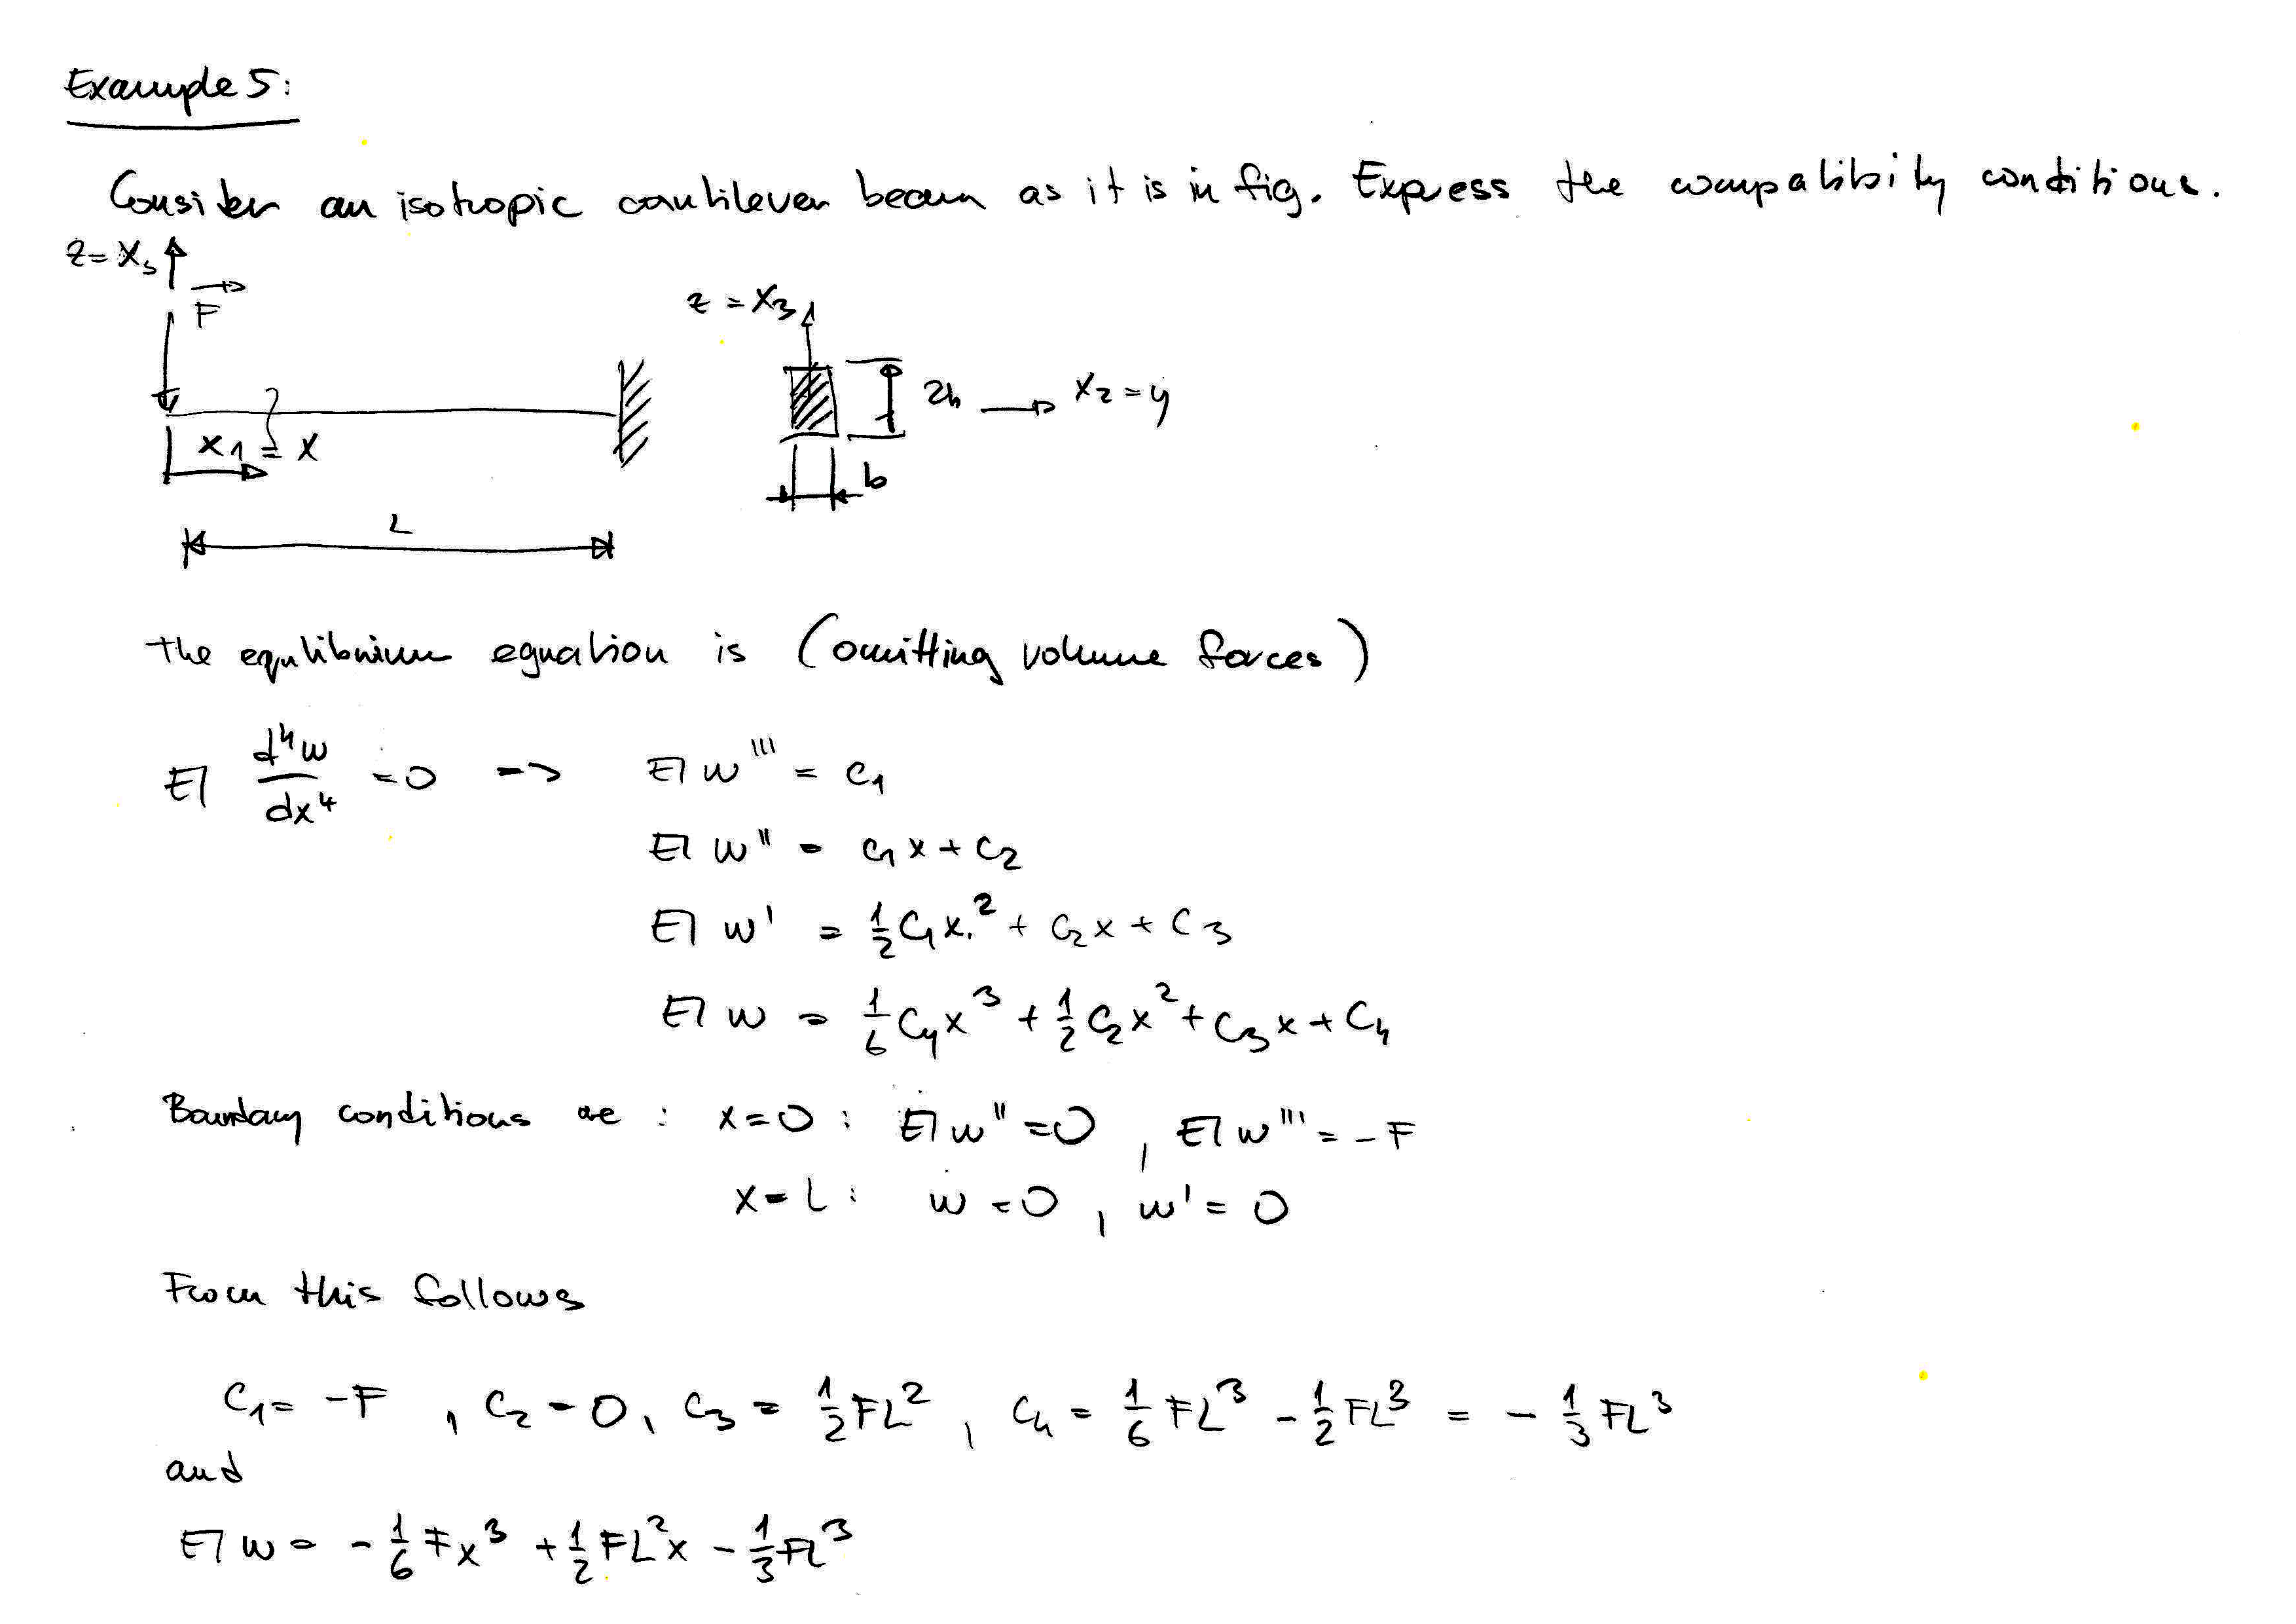 Example 5:
Consider an isotropic cantilever beam as it is in fig. Express the compatibility conditions.
z = x₃
F
x₁ = x
L
z = x₃
2h
x₂ = y
b
The equlibrium equation is (omitting volume forces)
EI d⁴w/dx⁴ = 0 -> EI w''' = C₁
EI w'' = C₁x + C₂
EI w' = 1/2 C₁x² + C₂x + C₃
EI w = 1/6 C₁x³ + 1/2 C₂x² + C₃x + C₄
Boundary conditions are : x=0 : EI w'' = 0 , EI w''' = -F
x = L : w = 0 , w' = 0
From this follows
C₁ = -F , C₂ = 0 , C₃ = 1/2 FL² , C₄ = 1/6 FL³ - 1/2 FL³ = - 1/3 FL³
and
EI w = - 1/6 Fx³ + 1/2 FL²x - 1/3 FL³